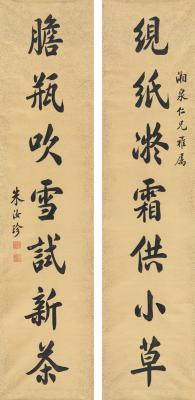 絸紙凝霜供小草
湘泉仁兄雅屬
膽瓶吹雪試新茶
朱汝珍